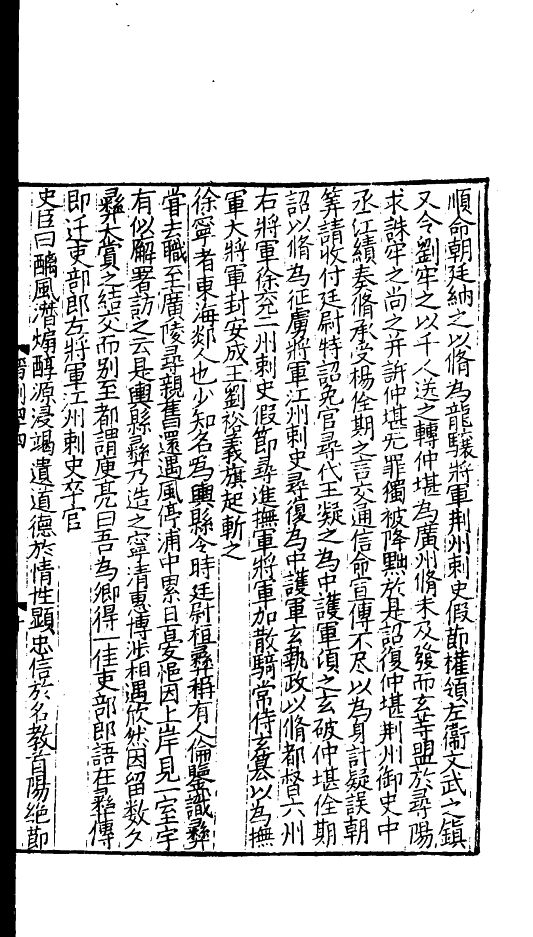 順命朝廷納之以脩為龍驤將軍荆州刺史假節權領左衞文武之鎮
又令劉牢之以千人送之轉仲堪為廣州脩未及發而玄等盟於尋陽
求誅牢之尚之并訴仲堪无罪獨被降黜於是詔復仲堪荆州御史中
丞江績奏脩承受楊佺期之言交通信命宣傳不尽以為身計疑誤朝
筭請收付廷尉特詔免官尋代王凝之為中護軍頃之玄破仲堪佺期
詔以脩為征虜將軍江州刺史尋復為中護軍玄執政以脩都督六州
右將軍徐兖二州刺史假節尋進撫軍將軍加散騎常侍玄簒以為撫
軍大將軍封安成王劉裕義旗起斬之
徐寧者東海郯人也少知名為輿縣令時廷尉桓彝稱有人倫鑒識彝
甞去職至廣陵尋親舊還遇風停浦中累日憂悒因上岸見一室宇
有似廨署訪之云是輿縣彝乃造之寧清惠博涉相遇欣然因留数夕
彝大賞之結交而别至都謂庾亮曰吾為卿得一佳吏部郎語在彝傳
即迁吏部郎左將軍江州刺史卒官
史臣曰醨風潛煽醇源浸竭遺道德於情性顯忠信於名教首陽絶節